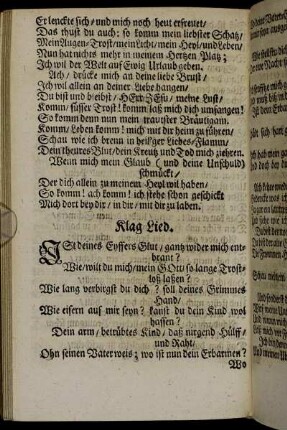 Er lenckte sich / und mich noch heut erfreuet /
Das thust du auch: so komm mein liebster Schatz /
Mein Augen-Trost / mein Licht / mein Heyl / und Leben /
Nun hat nichts mehr in meinem Hertzen Platz;
Ich wil der Welt auf Ewig Urlaub geben.
Ach / drücke mich an deine liebe Brust /
Ich wil allein an deiner Liebe hangen /
Du bist und bleibst / HErr JEsu / meine Lust /
Komm / süsser Trost! komm laß mich dich umfangen!
So komm denn nun mein trautster Bräutigam.
Komm / Leben komm! mich mit dir heim zu führen /
Schau wie ich brenn in heil'ger Liebes-Flamm /
Dein theures Blut / dein Kreutz und Tod mich ziehren.
Wenn mich mein Glaub (und deine Unschuld)
schmückt /
Der dich allein zu meinem Heyl wil haben /
So komm! ach komm! ich stehe schon geschickt
Mich dort bey dir / in dir / mit dir zu laben.
Klag Lied.
IST deines Eyffers Glut / gantz wider mich ent-
brant?
Wie / wilt du mich / mein GOtt / so lange Trost-
loß laßen?
Wie lang verbirgst du dich? soll deines Grimmes
Hand /
Wie eifern auf mir seyn? kanst du dein Kind wol
hassen?
Dein arm / betrübtes Kind / daß nirgend Hülff /
und Raht /
Ohn seinen Vater weis; wo ist nun dein Erbarmen?
Wo